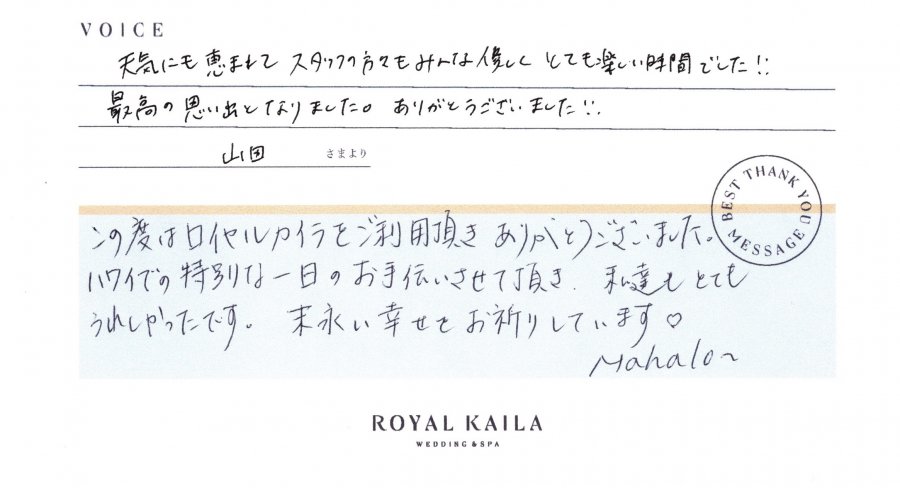 VOICE
天気にも恵まれて スタッフの方々もみんな優しく とても楽しい時間でした!!
最高の思い出となりました。 ありがとうございました!!
山田 さまより
BEST THANK YOU MESSAGE
この度はロイヤルカイラをご利用頂き ありがとうございました。
ハワイでの特別な一日のお手伝いさせて頂き、私達もとても
うれしかったです。 末永い幸せをお祈りしています♡
Mahalo~
ROYAL KAILA
WEDDING & SPA